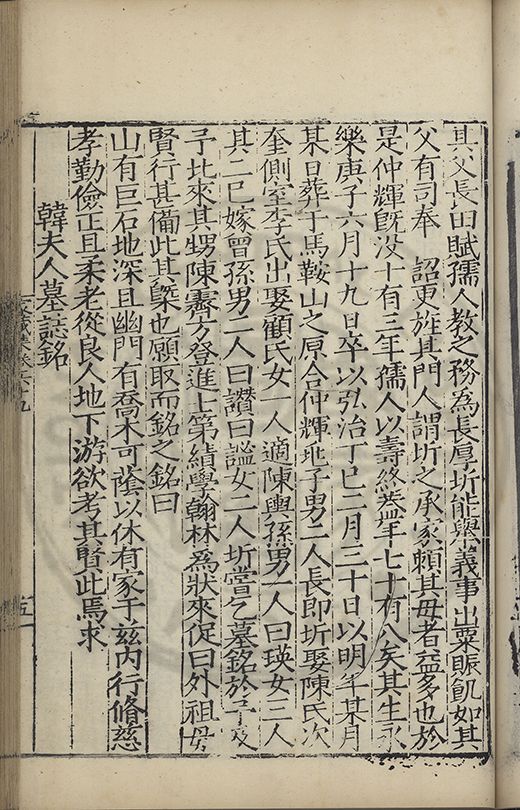 其父長田賦孺人教之務為長厚圻能舉義事出粟賑飢如其
父有司奉 詔更旌其門人謂圻之承家賴其毋者益多也於
是仲輝旣没十有三年孺人以壽終蓋年七十有八矣其生永
樂庚子六月十九日卒以弘治丁巳二月三十日以明年某月
某日葬于馬鞍山之原合仲輝兆子男二人長即圻娶陳氏次
奎側室李氏出娶顧氏女一人適陳輿孫男一人曰瑛女三人
其二已嫁曾孫男二人曰讚曰謐女二人圻嘗乞墓銘於予及
予比來其甥陳霽方登進士第績學翰林為狀來促曰外祖毋
賢行甚備此其槩也願取而銘之銘曰
山有巨石地深且幽門有喬木可蔭以休有家于兹内行脩慈
孝勤儉正且柔老從良人地下游欲考其賢此焉求
韓夫人墓誌銘
家藏集卷六十九
五